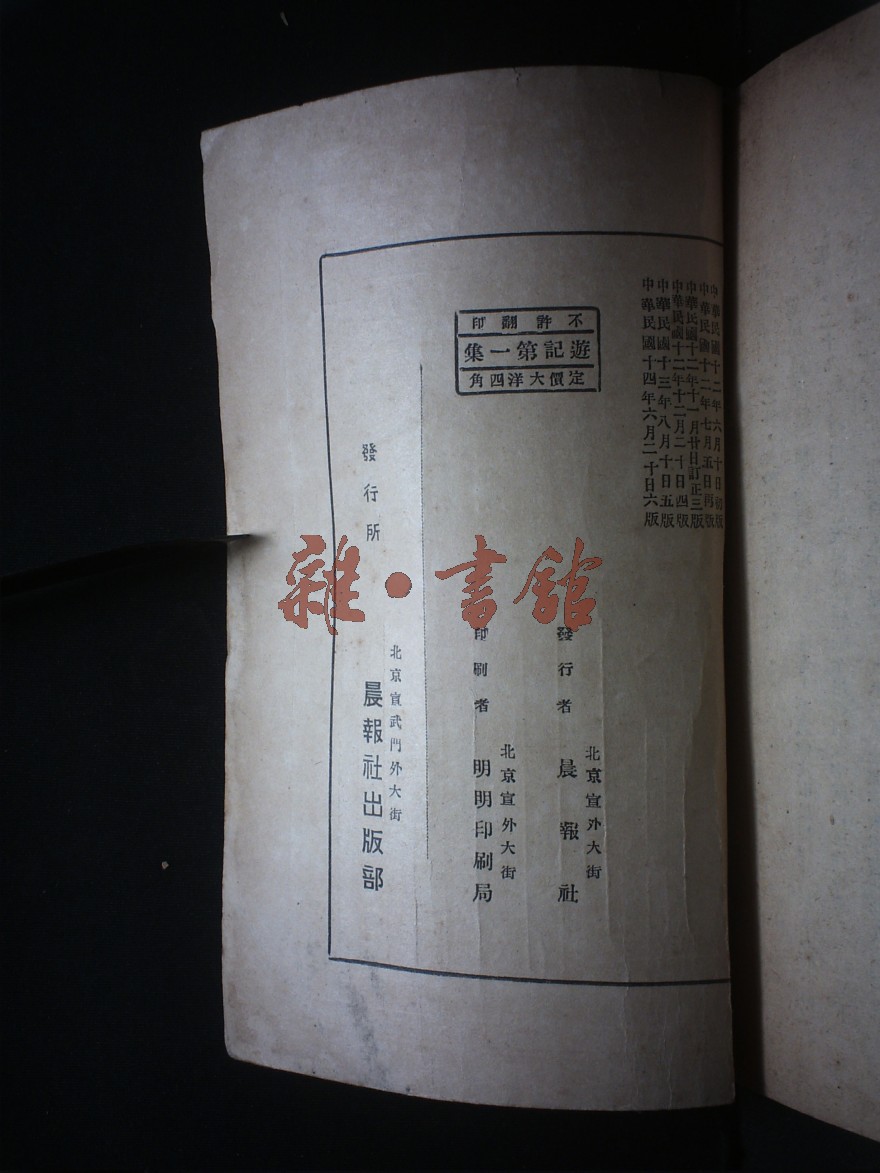 中華民國十二年六月十日初版
中華民國十二年七月五日再版
中華民國十二年十一月廿日訂正三版
中華民國十二年十二月二十日四版
中華民國十三年八月十日五版
中華民國十四年六月二十日六版
不許翻印
遊記第一集
定價大洋四角
北京宣外大街
發行者 晨報社
北京宣外大街
印刷者 明明印刷局
北京宣武門外大街
發行所 晨報社出版部
雜·書館